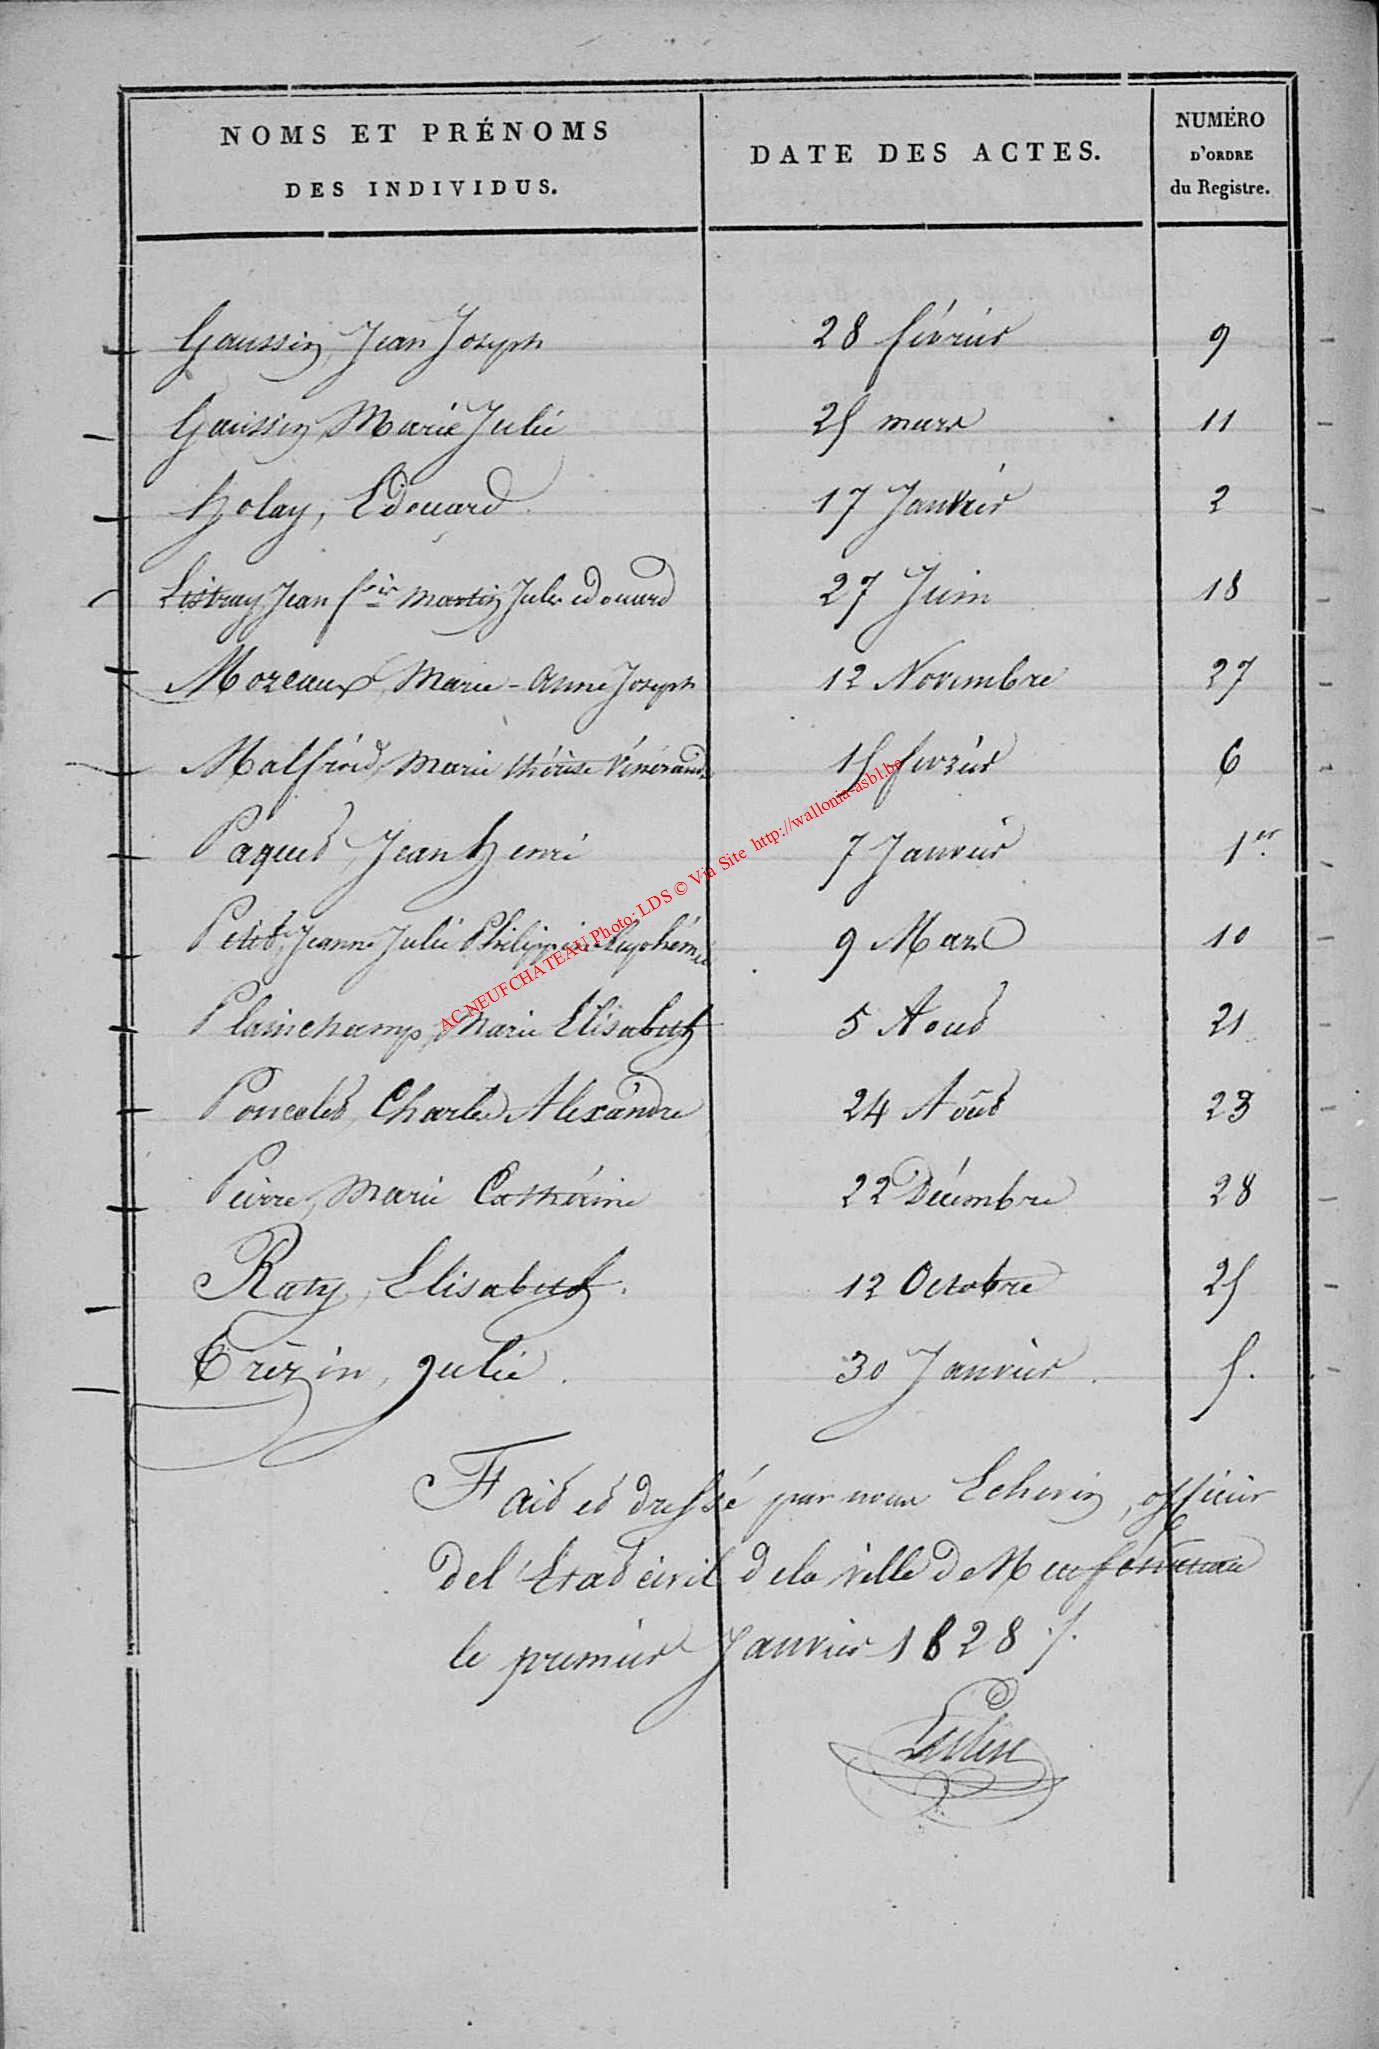 NOMS ET PRÉNOMS
DES INDIVIDUS.
DATE DES ACTES.
NUMÉRO
D'ORDRE
du Registre.
Gaussin, Jean Joseph 28 février 9
Gaussin, Marie Julie 25 mars 11
holay, Edouard 17 Janvier 2
Jean Martin Jules edouard 27 Juin 18
Mozeaux, Marie-Anne Joseph 12 Novembre 27
Malfroid, Marie thérèse Vénérande 15 fevrier 6
Paquet, Jean henri 7 Janvier 1er
Petit, Jeanne Julie Philippine Euphémie 9 Mars 10
Plainchamp, Marie Elisabeth 5 Aout 21
Poncelet, Charles Alexandre 24 Août 23
Pierre, Marie Catherine 22 Décembre 28
Raty, Elisabeth. 12 Octobre 25
Trèzin, Julie. 30 Janvier. 5.
Fait et dressé par nous Echevin, officier
de l'Etat civil de la ville de Neufchateau
le premier Janvier 1828 ./.
AC NEUFCHATEAU Photo: LDS © Via Site http://wallonia-asbl.be